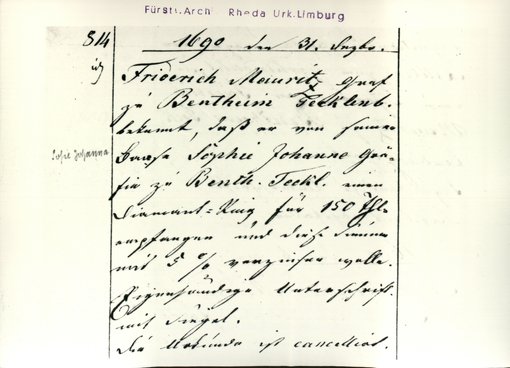 Fürstl. Arch. Rheda Urk. Limburg
814
1690 den 31. Dezbr.
Friderich Mauritz Graf
zu Bentheim Tecklenb.
bekennt, daß er von seiner
Baase Sophie Johanne Grä-
Sofie Johanna
fin zu Benth. Teckl. einen
Diamant-Ring für 150 Thlr
empfangen und diese Summe
mit 5 % verzinsen wolle.
Eigenhändige Unterschrift.
mit Siegel.
Die Urkunde ist cancelliert.